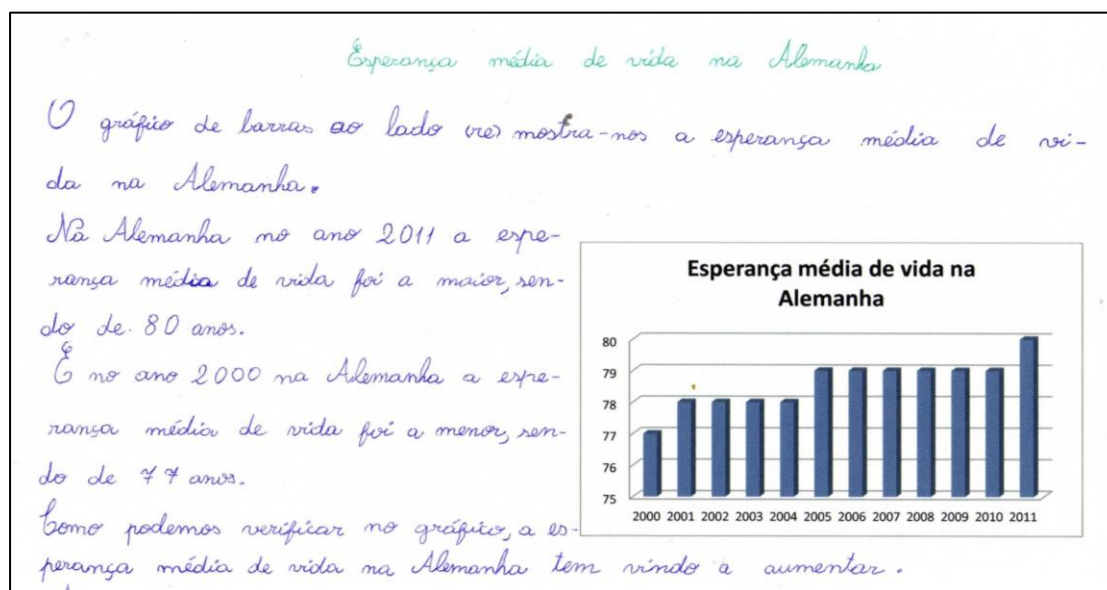 Esperança média de vida na Alemanha
O gráfico de barras ao lado mostra-nos a esperança média de vi-
da na Alemanha.
Na Alemanha no ano 2011 a espe-
rança média de vida foi a maior, sen-
do de 80 anos.
E no ano 2000 na Alemanha a espe-
rança média de vida foi a menor, sen-
do de 77 anos.
Como podemos verificar no gráfico, a es-
perança média de vida na Alemanha tem vindo a aumentar.
Esperança média de vida na
Alemanha
80
79
78
77
76
75
2000 2001 2002 2003 2004 2005 2006 2007 2008 2009 2010 2011